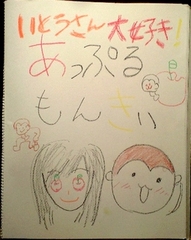 いとうさん大好き!
あっぷる
もんきぃ